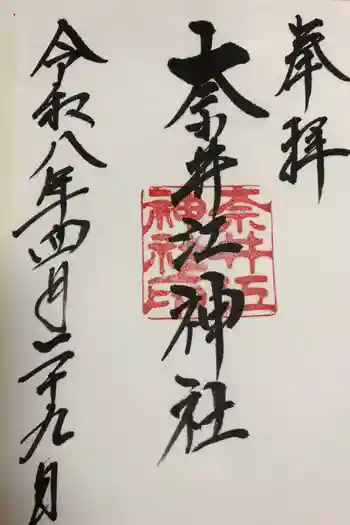 奉拝
奈井江神社
奈井江
神社印
令和八年四月二十九月